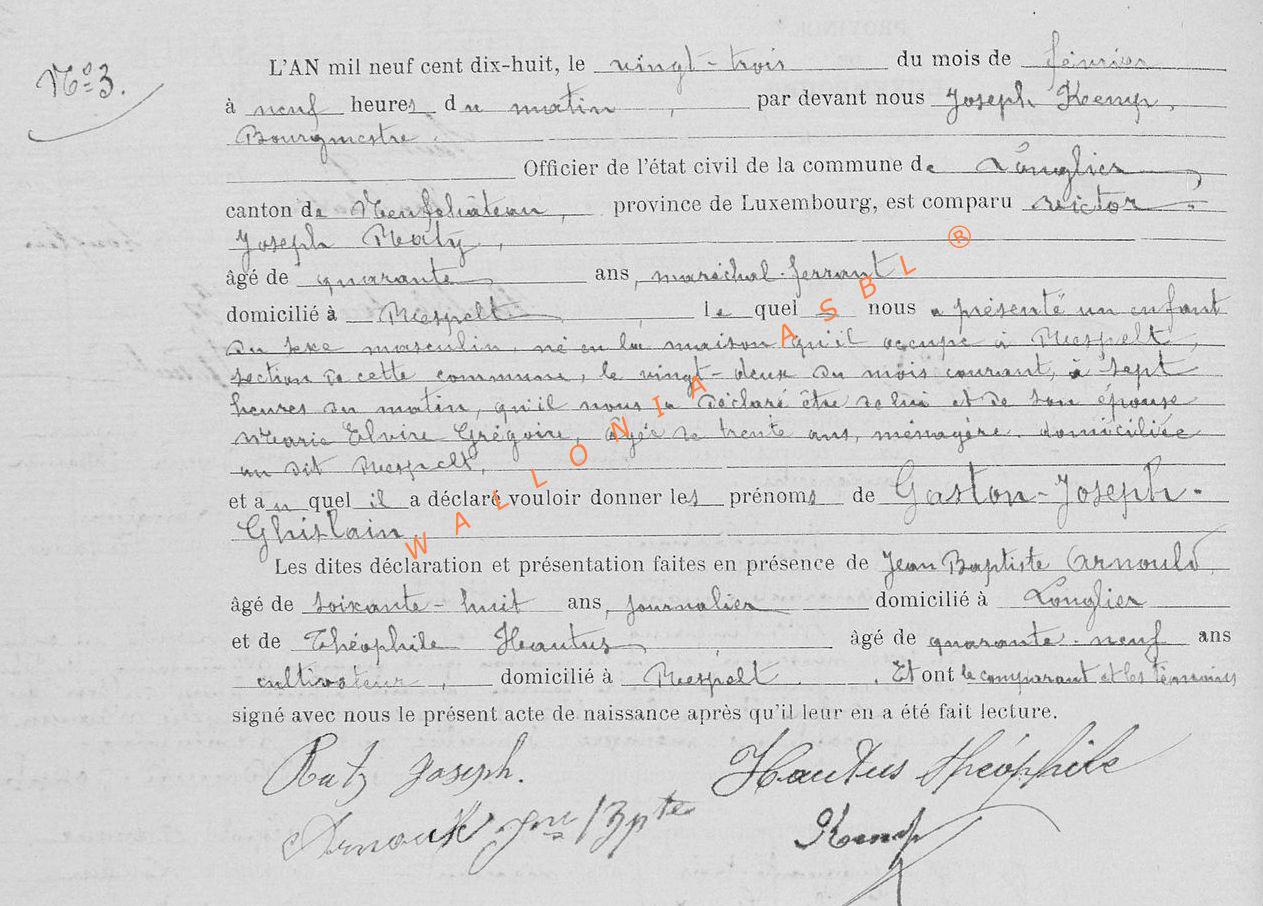 Nº 3.
L'AN mil neuf cent dix-huit, le vingt-trois du mois de février
à neuf heures du matin, par devant nous Joseph Kemp,
Bourgmestre
Officier de l'état civil de la commune de Longlier,
canton de Neufchâteau, province de Luxembourg, est comparu Victor
Joseph Ratz,
âgé de quarante ans, maréchal-ferrant
domicilié à Respelt, le quel nous a présenté un enfant
du sexe masculin, né en la maison qu'il occupe à Respelt,
section de cette commune, le vingt-deux du mois courant, à sept
heures du matin, qu'il nous a déclaré être de lui et de son épouse
Marie Elvire Grégoire, âgée de trente ans, ménagère, domiciliée
au dit Respelt,
et au quel il a déclaré vouloir donner les prénoms de Gaston-Joseph-
Ghislain
Les dites déclaration et présentation faites en présence de Jean Baptiste Arnould
âgé de soixante-huit ans, journalier domicilié à Longlier
et de Théophile Hautus, âgé de quarante-neuf ans
cultivateur, domicilié à Respelt. Et ont le comparant et les témoins
signé avec nous le présent acte de naissance après qu'il leur en a été fait lecture.
Ratz Joseph. Hautus Théophile
Arnould Jn Bpte Kemp
WALLONIA ASBL ®